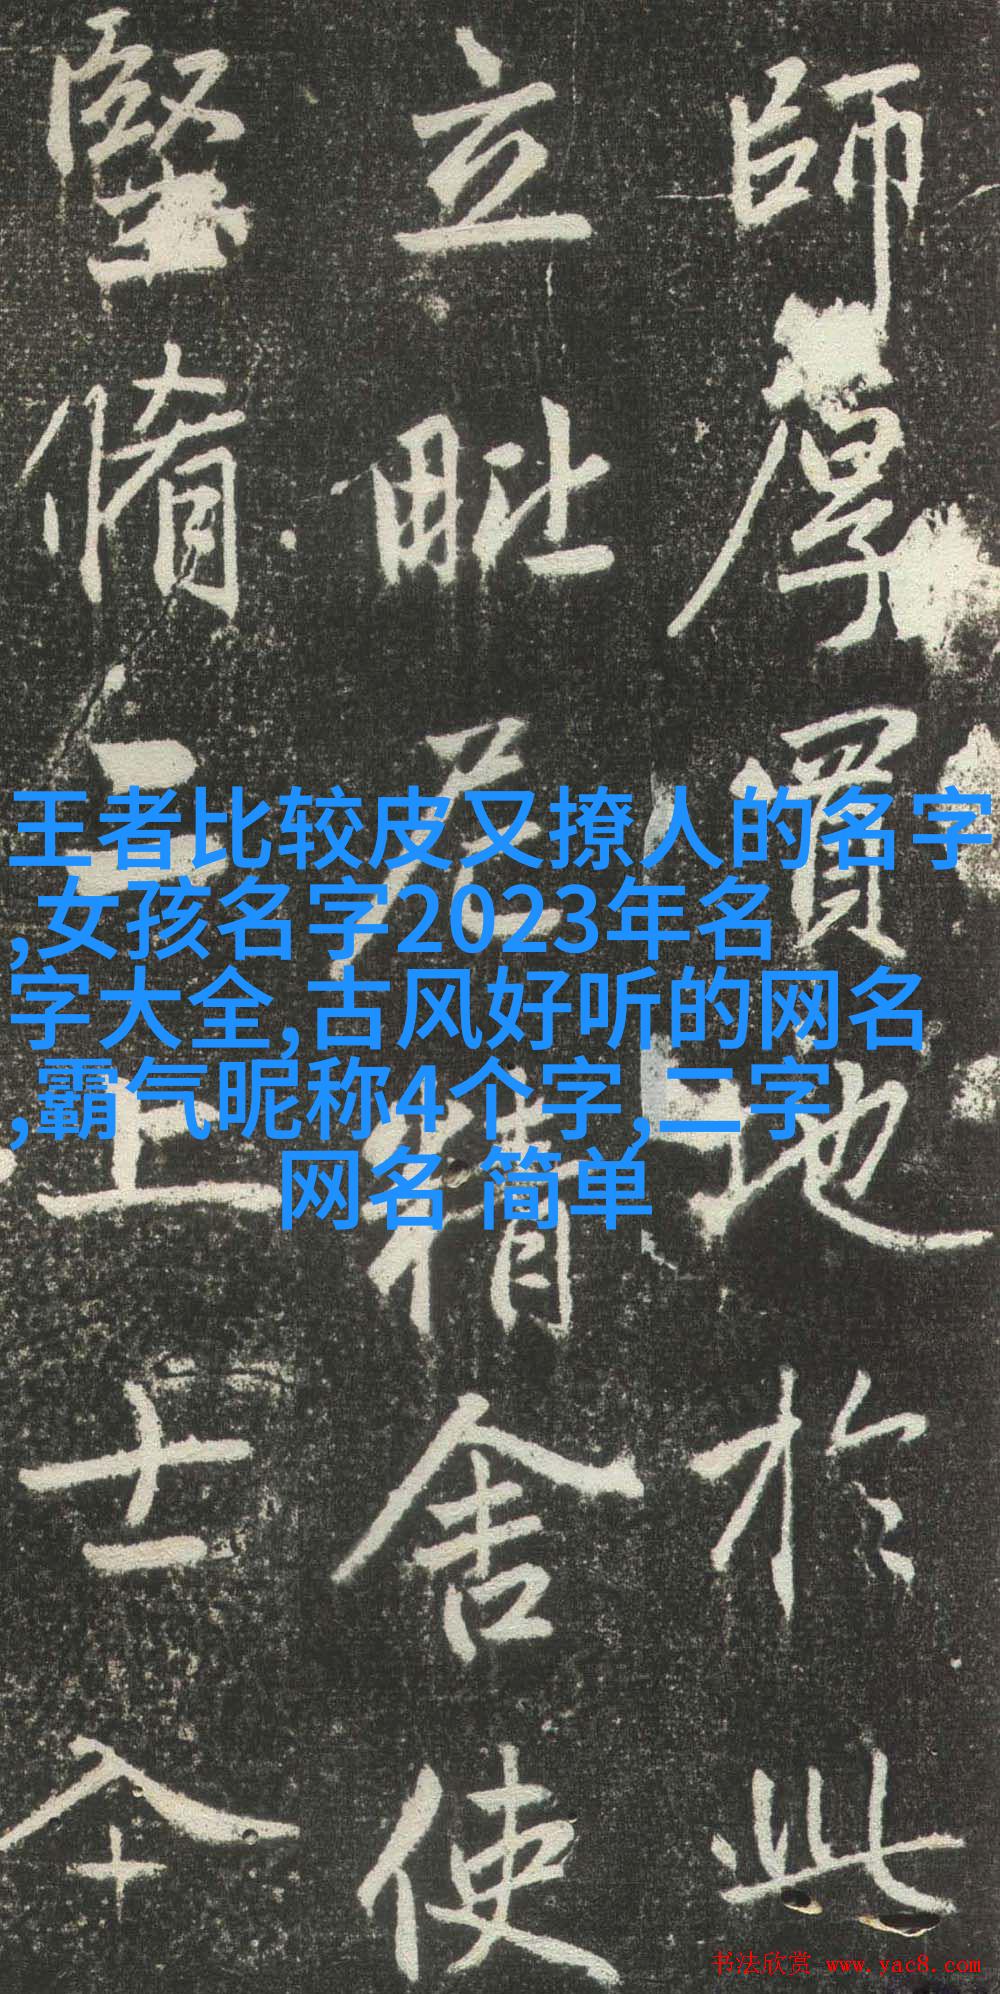 師厚地於此
立毗尼精舍使
堅脩上士
王者比较皮又撩人的名字
,女孩名字2023年名
字大全,古风好听的网名
,霸气昵称4个字,二字
网名 简单
书法欣赏 www.yac8.com